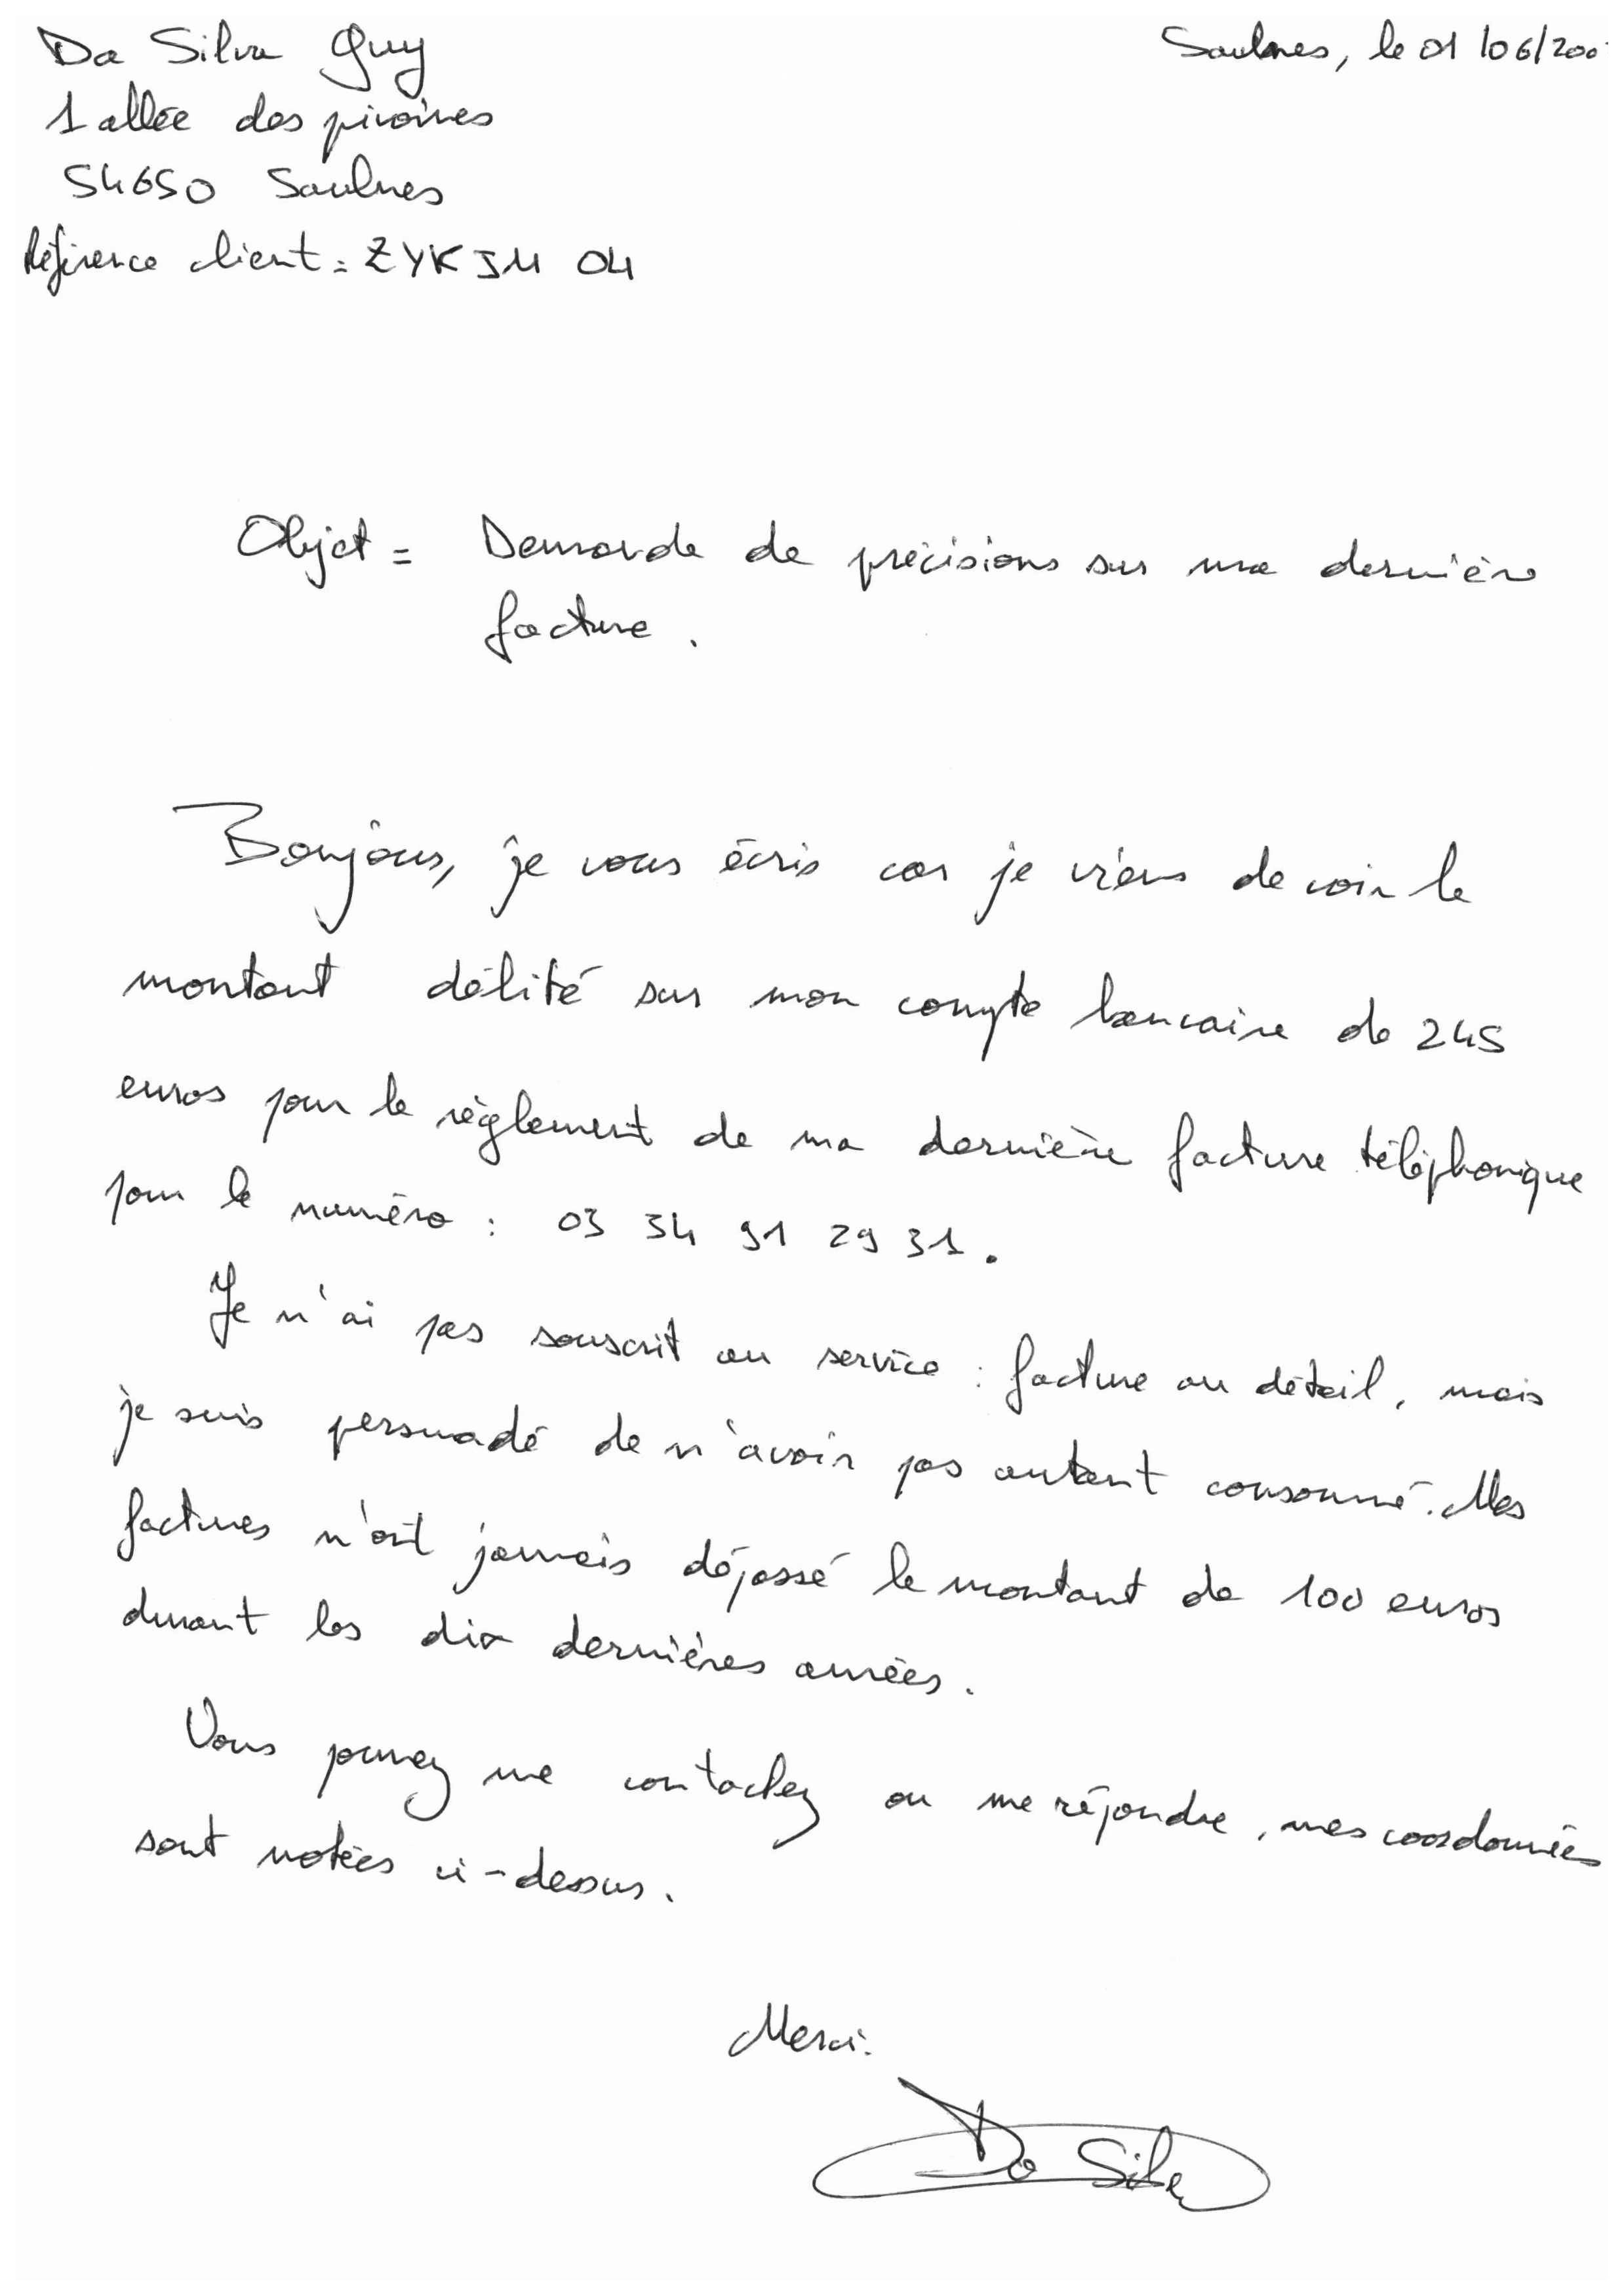 Da Silva Guy
Saulnes, le 01/06/200
1 allée des pivoines
54650 Saulnes
Référence client = ZYKJM 04
Objet = Demande de précisions sur ma dernière
facture.
Bonjour, je vous écris car je viens de voir le
montant débité sur mon compte bancaire de 245
euros pour le règlement de ma dernière facture téléphonique
pour le numéro : 03 34 91 29 31.
Je n'ai pas souscrit au service : facture au détail, mais
je suis persuadé de n'avoir pas autant consommé. Mes
factures n'ont jamais dépassé le montant de 100 euros
durant les dix dernières années.
Vous pouvez me contactez ou me répondre, mes coordonnées
sont notées ci-dessus.
Merci.
Da Silva